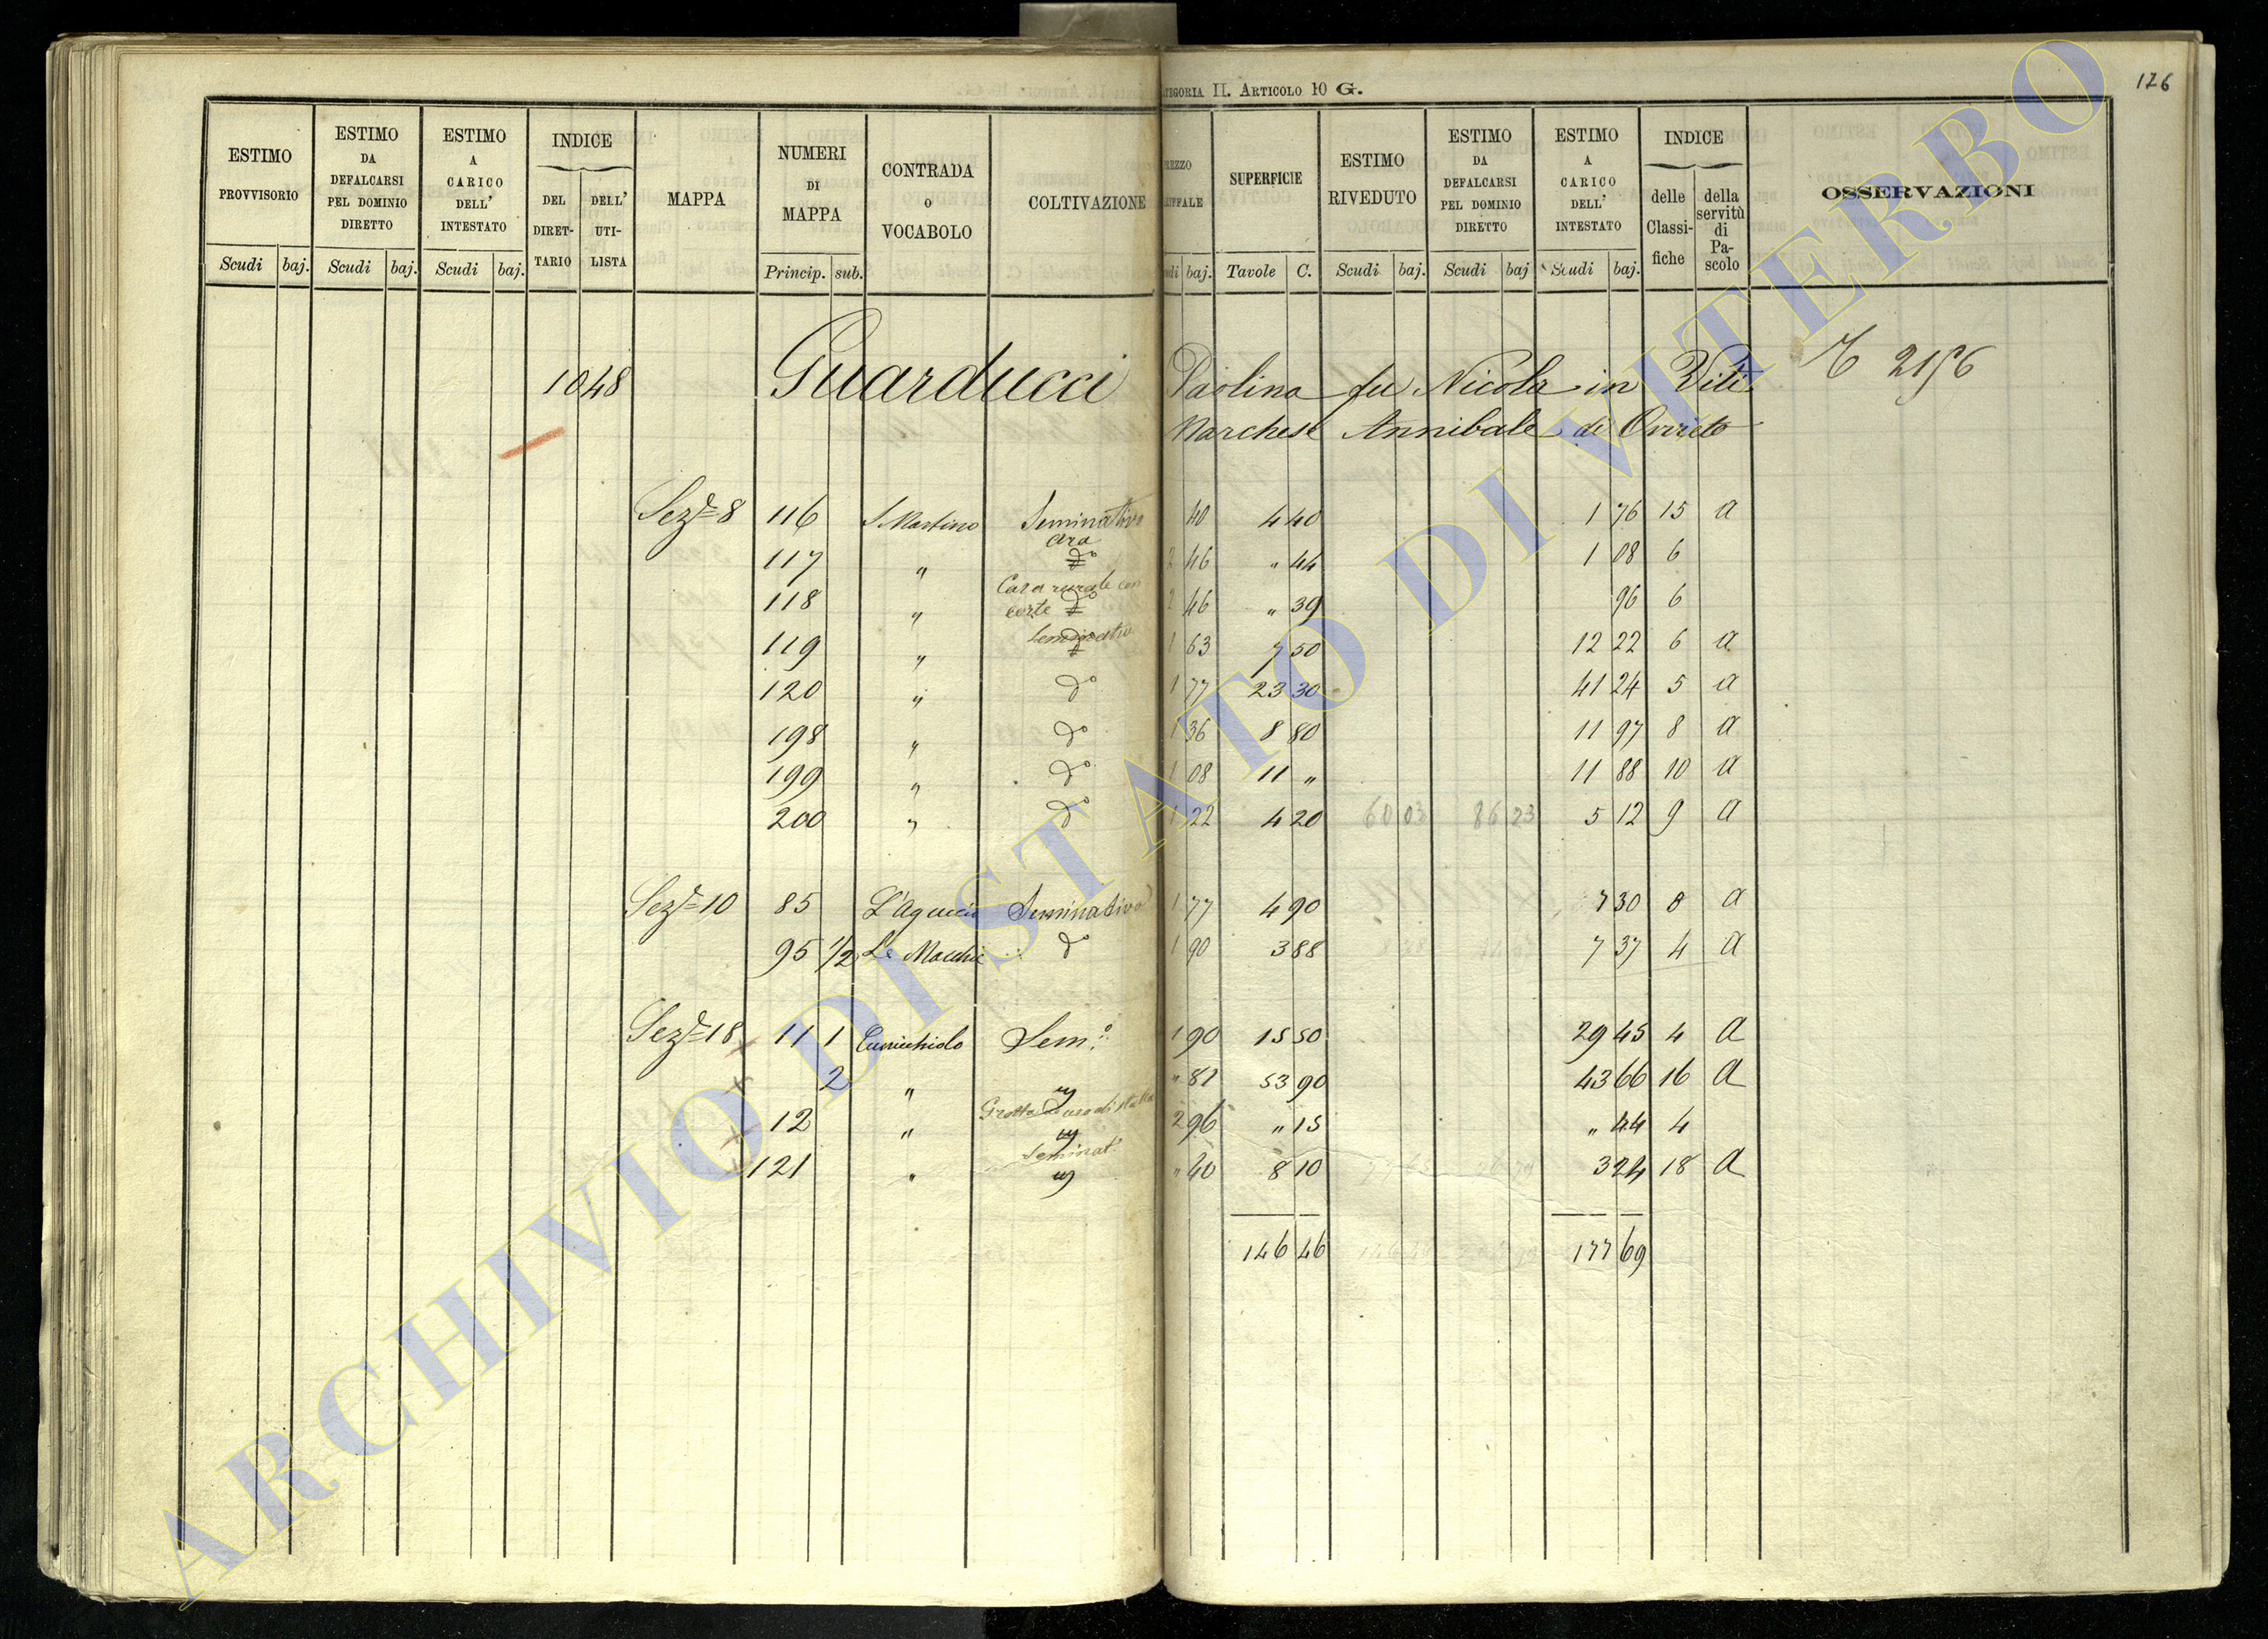 TEGORIA II. ARTICOLO 10 G.
176
ESTIMO PROVVISORIO
ESTIMO DA DEFALCARSI PEL DOMINIO DIRETTO
ESTIMO A CARICO DELL' INTESTATO
INDICE
DEL DIRETTARIO
DELL' UTILISTA
MAPPA
NUMERI DI MAPPA
CONTRADA O VOCABOLO
COLTIVAZIONE
REZZO
SUPERFICIE
ESTIMO RIVEDUTO
ESTIMO DA DEFALCARSI PEL DOMINIO DIRETTO
ESTIMO A CARICO DELL' INTESTATO
INDICE
delle Classifiche
della servitù di Pascolo
OSSERVAZIONI
Scudi baj. Scudi baj. Scudi baj. Princip. sub. baj. Tavole C. Scudi baj. Scudi baj Scudi baj.
1048 Guarducci Paolina fu Nicola in Viti 2156
Marchese Annibale di Orvieto
Sez. 8 116 S. Martino Seminativo 40 4 40 1 76 15 a
Ara
117 " do 2 46 " 44 1 08 6
Casa rurale con
118 " corte do 2 46 " 39 96 6
119 " Seminativo 1 63 7 50 12 22 6 a
120 " do 1 77 23 30 41 24 5 a
198 " do 1 36 8 80 11 97 8 a
199 " do 1 08 11 " 11 88 10 a
200 " do 1 22 4 20 60 03 86 23 5 12 9 a
Sez. 10 85 Seminativo 1 77 4 90 7 30 a
95 1/2 Le Macchie do 1 90 3 88 7 37 4 a
Sez. 18 11 1 Cunicchiolo Sem.o 1 90 15 50 29 45 4 a
2 " " 81 53 90 43 66 16 a
Grotta ad uso di stalla
12 " 2 96 " 15 " 44 4
Seminat
121 " " 40 8 10 3 24 18 a
146 46 177 69
ARCHIVIO DI STATO DI VITERBO